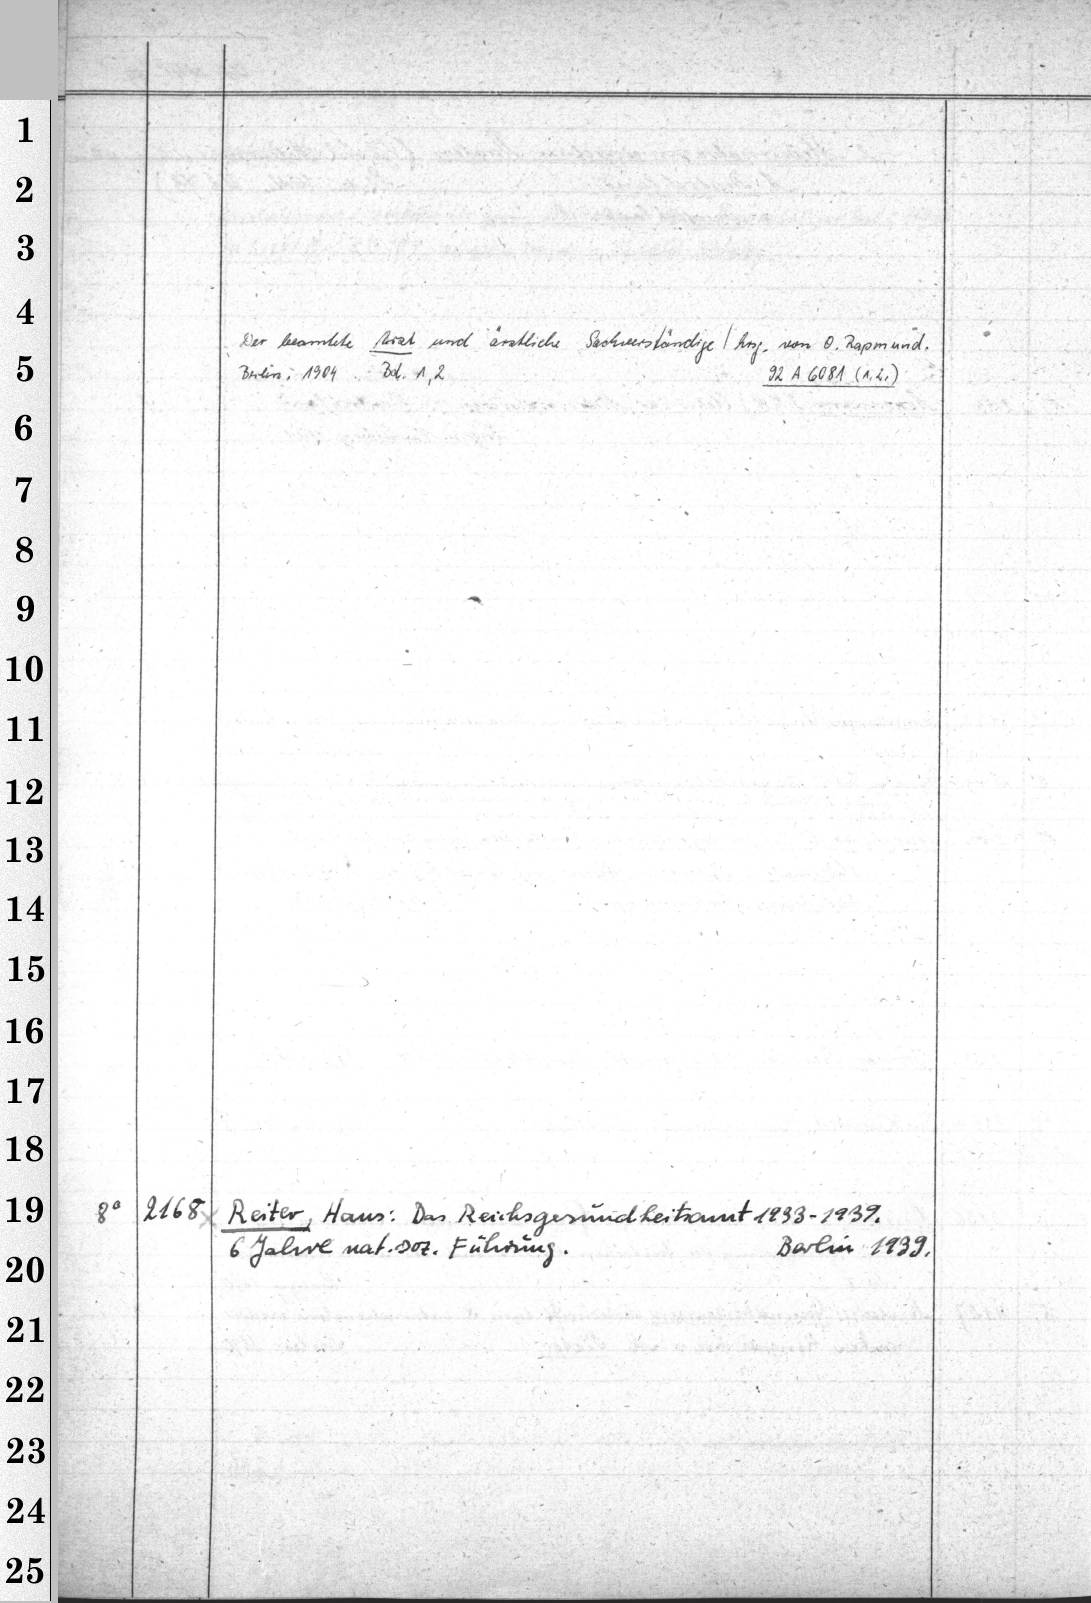 1
2
3
4
Der beamtete Arzt und ärztliche Sachverständige / hrsg. von O. Rapmund.
5
Berlin: 1904 Bd. 1,2 92 A 6081 (1.2.)
6
7
8
9
10
11
12
13
14
15
16
17
18
19
8° 2168 x Reiter, Hans: Das Reichsgesundheitsamt 1933-1939.
6 Jahre nat.-soz. Führung. Berlin 1939.
20
21
22
23
24
25